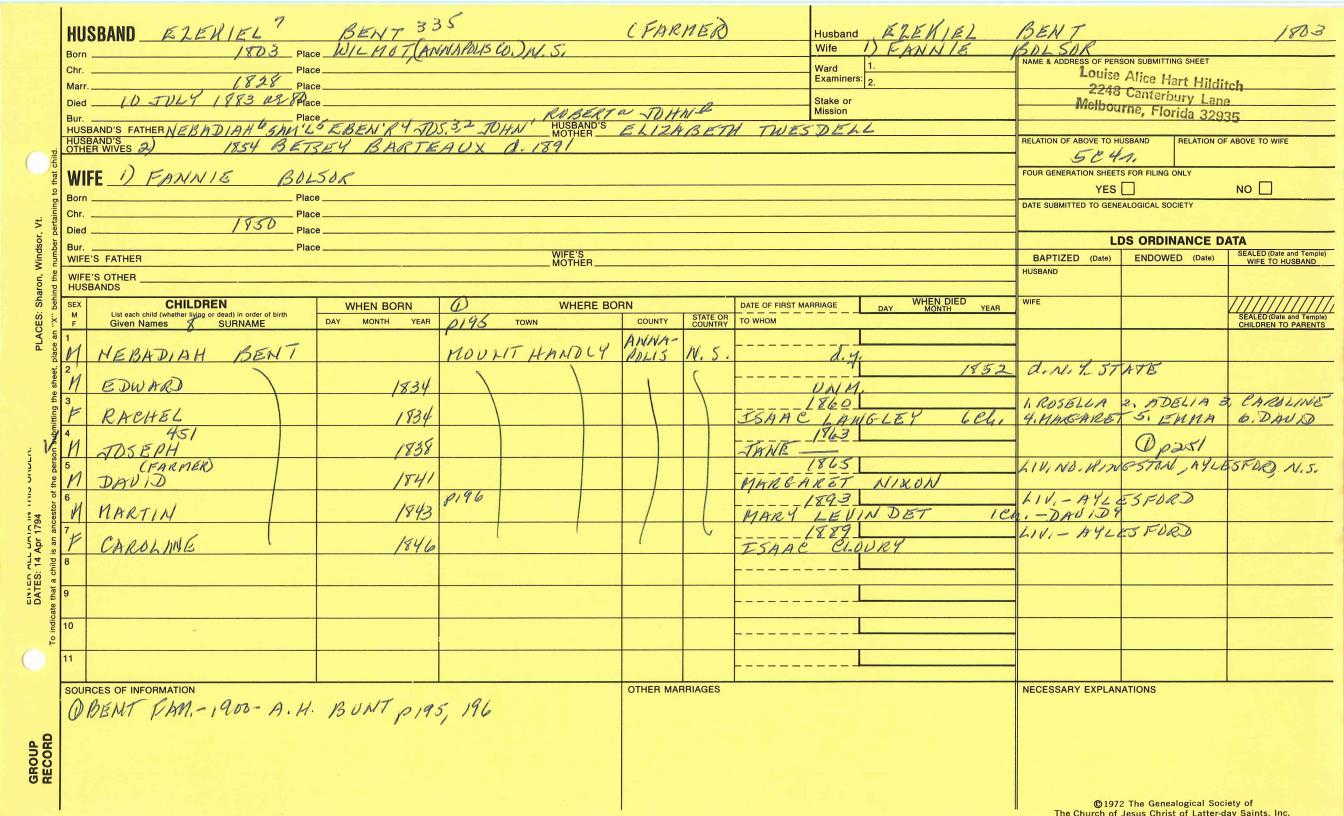 HUSBAND EZEKIEL 7 BENT 335 (FARMER)
Born 1803 Place WILMOT, (ANNAPOLIS CO.) N.S.
Chr. Place
Marr. 1828 Place
Died 10 JULY 1883 or 80 Place
Bur. Place ROBERT or JOHN
HUSBAND'S FATHER NEBADIAH 6 SAM'L 5 EBEN'R 4 JOS. 3,2 JOHN 1 HUSBAND'S MOTHER ELIZABETH TWESDELL
HUSBAND'S OTHER WIVES 2) 1854 BETSEY BARTEAUX d. 1891
WIFE 1) FANNIE BOLSOR
Born Place
Chr. Place
Died 1850 Place
Bur. Place
WIFE'S FATHER WIFE'S MOTHER
WIFE'S OTHER HUSBANDS
Husband EZEKIEL BENT 1803
Wife 1) FANNIE BOLSOR
Ward Examiners: 1.
2.
Stake or Mission
NAME & ADDRESS OF PERSON SUBMITTING SHEET
Louise Alice Hart Hilditch
2248 Canterbury Lane
Melbourne, Florida 32935
RELATION OF ABOVE TO HUSBAND RELATION OF ABOVE TO WIFE
5C4r.
FOUR GENERATION SHEETS FOR FILING ONLY
YES NO
DATE SUBMITTED TO GENEALOGICAL SOCIETY
LDS ORDINANCE DATA
BAPTIZED (Date) ENDOWED (Date) SEALED (Date and Temple) WIFE TO HUSBAND
HUSBAND
WIFE
SEALED (Date and Temple) CHILDREN TO PARENTS
SEX M F CHILDREN WHEN BORN ① WHERE BORN DATE OF FIRST MARRIAGE WHEN DIED
List each child (whether living or dead) in order of birth
Given Names 8 SURNAME DAY MONTH YEAR p195 TOWN COUNTY STATE OR COUNTRY TO WHOM DAY MONTH YEAR
1 M NEBADIAH BENT MOUNT HANDLY ANNAPOLIS N.S. d.y.
2 M EDWARD 1834 UNM. 1852 d. N.Y. STATE
3 F RACHEL 1834 1860 ISAAC LANGLEY 6 Ch. 1. ROSELLA 2. ADELIA 3. CAROLINE
4. MARGARET 5. EMMA 6. DAVID
4 M JOSEPH 451 1838 1863 JANE —— ① p251
5 M (FARMER) DAVID 1841 1865 MARGARET NIXON LIV. NO. KINGSTON, AYLESFORD, N.S.
6 M MARTIN 1843 p196 1893 MARY LEVIN DET 1 Ch. - DAVID 9 LIV. - AYLESFORD
7 F CAROLINE 1846 1889 ISAAC CLOURY LIV. - AYLESFORD
8
9
10
11
SOURCES OF INFORMATION
① BENT FAM. - 1900 - A.H. BUNT p195, 196
OTHER MARRIAGES
NECESSARY EXPLANATIONS
©1972 The Genealogical Society of
The Church of Jesus Christ of Latter-day Saints, Inc.
PLACES: Sharon, Windsor, Vt.
ENTER ALL DATA IN THIS ORDER:
DATES: 14 Apr 1794
To indicate that a child is an ancestor of the person submitting the sheet, place an "X" behind the number pertaining to that child.
GROUP RECORD